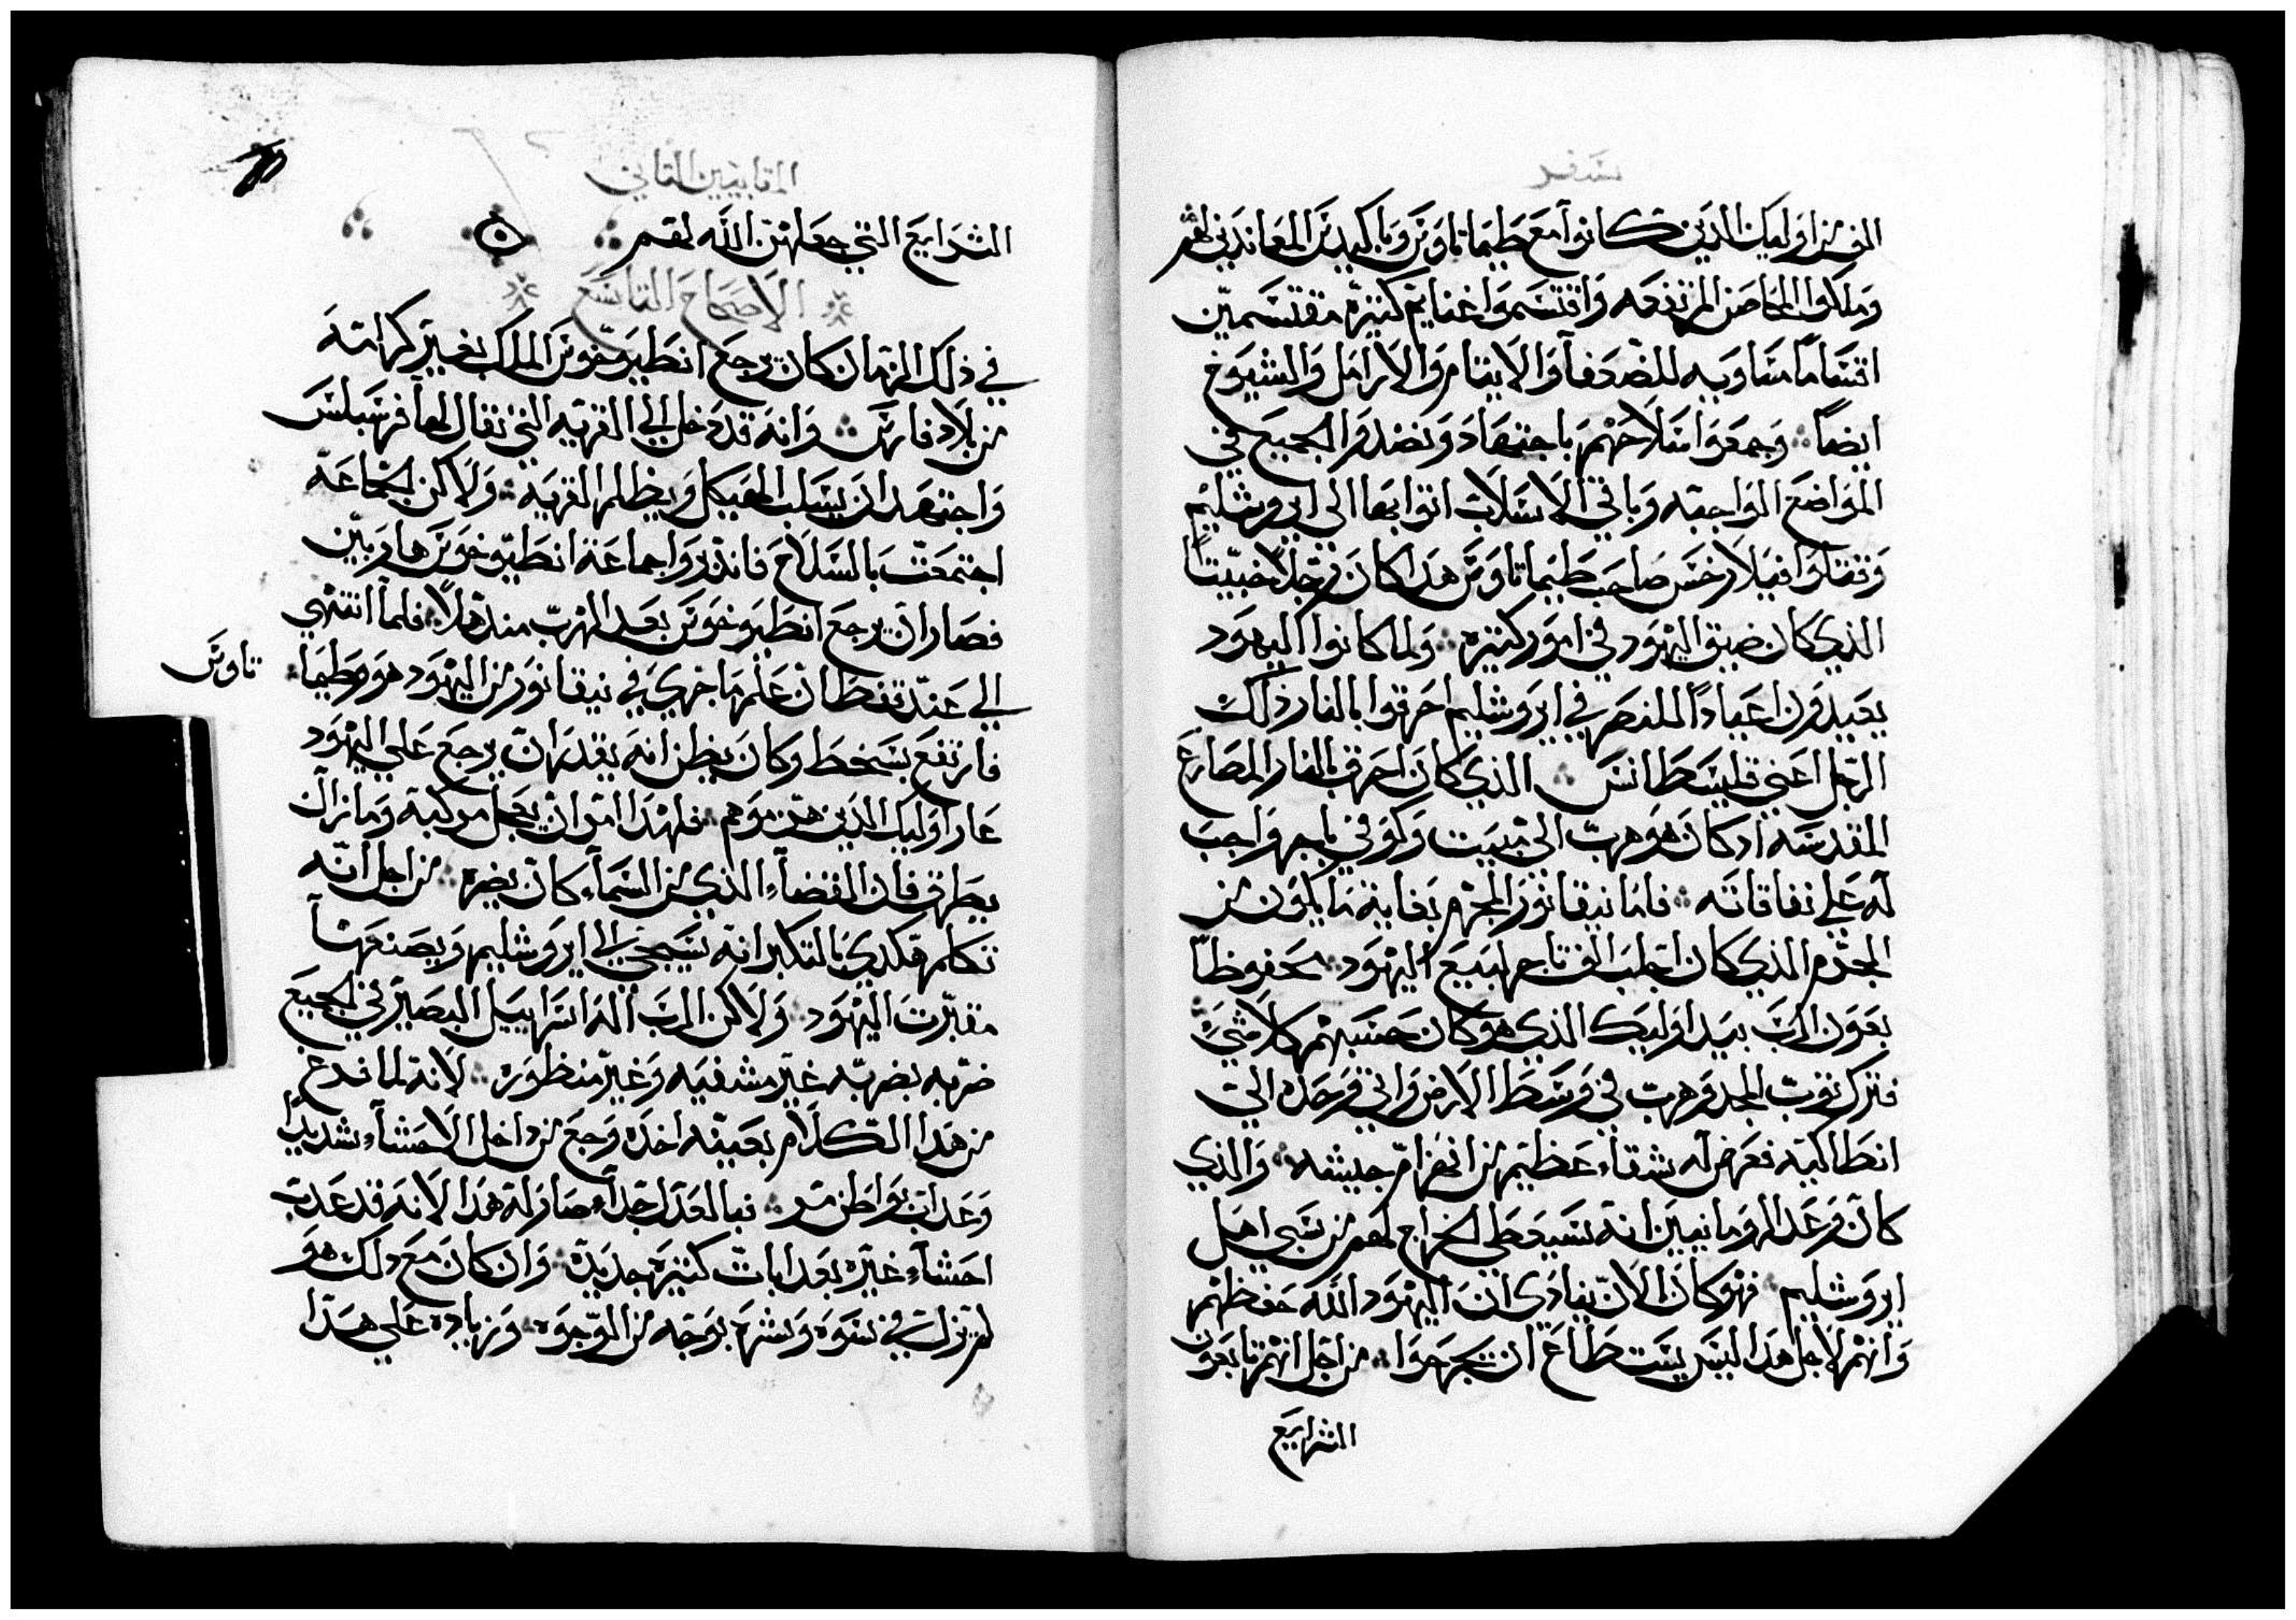 سفر
الف من اوليك الدين كانوا مع طيماتاوس وباكيديس المعاندين لهم
وملكوا المحاصن المرتفعه واقتسموا غنايم كتيره مقتسمين
اقتساما متساويه للضعفآ والايتام والارامل والشيوخ
ايضاً وجمعوا سلاحهم باجتهاد ونضدوا الجميع في
المواضع الواجبه وباقي الاسلاب اتوا بها الى ايروشليم
وقتلوا فيلارخس صاحب طيماتاوس هدا كان رجلاً خبيتاً
الذي كان ضيق اليهود في امور كتيره ولما كانوا اليهود
يعيدون اعياداً للنصر في ايروشليم احرقوا بالنار ذلك
الرجل اعني قليسطانس الذي كان احرق بالنار المصارع
المقدسه اد كان هو هرب الى بيت وكوفي باجر واجب
له علي نفاقاته فاما نيقانور المجرم بغاية ما يكون من
المجرم الذي كان اجلب الف تاجر لبيع اليهود محفوظاً
بعون الرب بيد اوليك الذي هو كان حسبهم كلا شي
فترك توب المجد وهرب في وسط الارض واتي وحده الي
انطاكيه فعرض له شقآء عظيم من انهزام جيشه والذي
كان وعد الرومانيين انه سيعطي الخراج لهم من سبي اهل
ايروشليم فهو كان الان ينادي ان اليهود الله حفظهم
وانهم لاجل هدا ليس يستطاع ان يجرحوا من اجل انهم تابعون
الشرايع
المقابيين التاني
الشرايع التي جعلهن الله لهم ٥
الاصحاح التاسع
في ذلك الزمان كان رجع انطيوخوس الملك بغير كرامته
من بلاد فارس وانه قد دخل الي القريه التي تقال لها فرسبلس
واجتهد ان يسلب الهيكل ويظلم القريه ولاكن الجماعه
اجتمعت بالسلاح فاندبروا جماعة انطيوخوس هاربين
فصار ان يرجع انطيوخوس بعد الهرب مندهلاً فلما انتهي
الي عند قفطان علم ما جري في نيقانور من اليهود هو وطيما
تاوس
فارتفع بسخط وكان يظن انه يقدر ان يرجع علي اليهود
عار اوليك الدين هزموهم فلهدا امر ان يعجل مركبته وما زال
يطرق فان القضآء الذي من السمآء كان يضره من اجل انه
تكلم هكدي بالتكبر انه سيجي الي ايروشليم ويصنعها
مقبرت اليهود ولاكن الرب اله اسراييل البصير في الجميع
ضربه بضربه غير مشفيه وغير منظوره لانه لما فرغ
من هدا الكلام بعينه اخده وجع من داخل الاحشآء شديداً
وعدابت بواطن مر فبالعدل جداً صار له هدا لانه قد عدب
احشآء غيره بعدابات كتيره جديده وان كان مع دلك هو
لم تزل في سوه وشر بوجه من الوجوه وزياده علي هدا